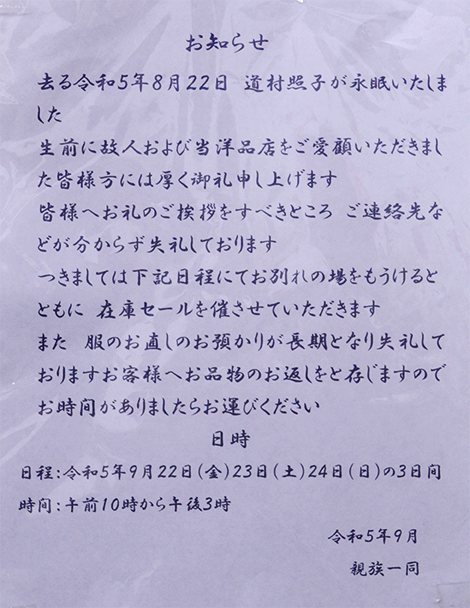 お知らせ
去る令和5年8月22日 道村照子が永眠いたしま
した
生前に故人および当洋品店をご愛顧いただきまし
た皆様方には厚く御礼申し上げます
皆様へお礼のご挨拶をすべきところ ご連絡先な
どが分からず失礼しております
つきましては下記日程にてお別れの場をもうけると
ともに 在庫セールを催させていただきます
また 服のお直しのお預かりが長期となり失礼して
おりますお客様へお品物のお返しをと存じますので
お時間がありましたらお運びください
日時
日程:令和5年9月22日(金)23日(土)24日(日)の3日間
時間:午前10時から午後3時
令和5年9月
親族一同